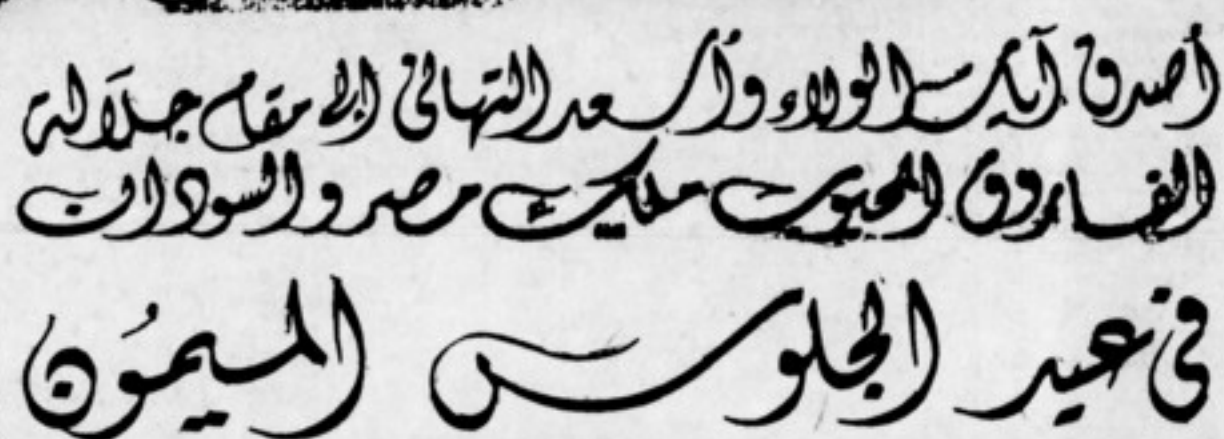 أصدق آيات الولاء وأسعد التهانى إلى مقام جلالة
الفاروق المحبوب مليك مصر والسودان
فى عيد الجلوس الميمُون